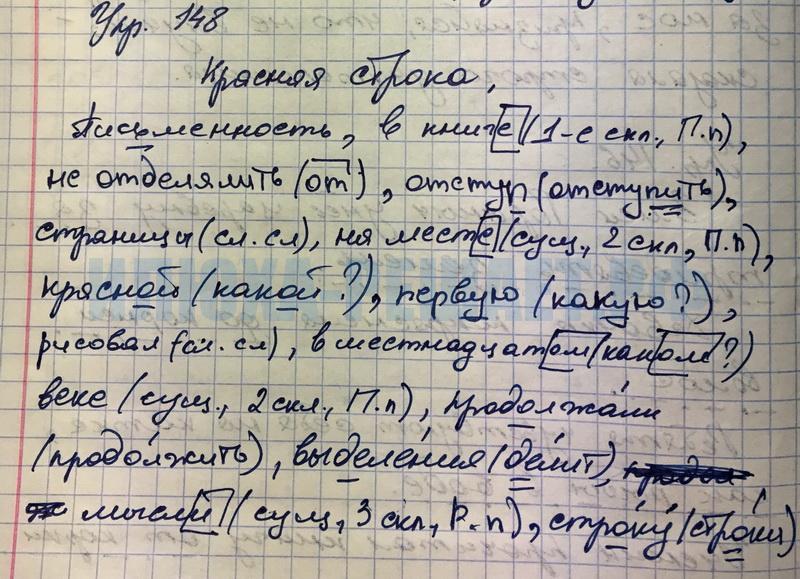 Упр. 148
Красная строка,
Письменность, в книге (1-е скл., П.п),
не отделялить (от), отступ (отступить),
страницы (сл. сл), на месте (сущ., 2 скл, П.п),
красной (какой?), первую (какую?),
рисовал (сл. сл), в шестнадцатом (каком?)
веке (сущ., 2 скл., П.п), продолжали
(продолжить), выделения (делит),
мысли (сущ, 3 скл, Р.п), строку (строки)